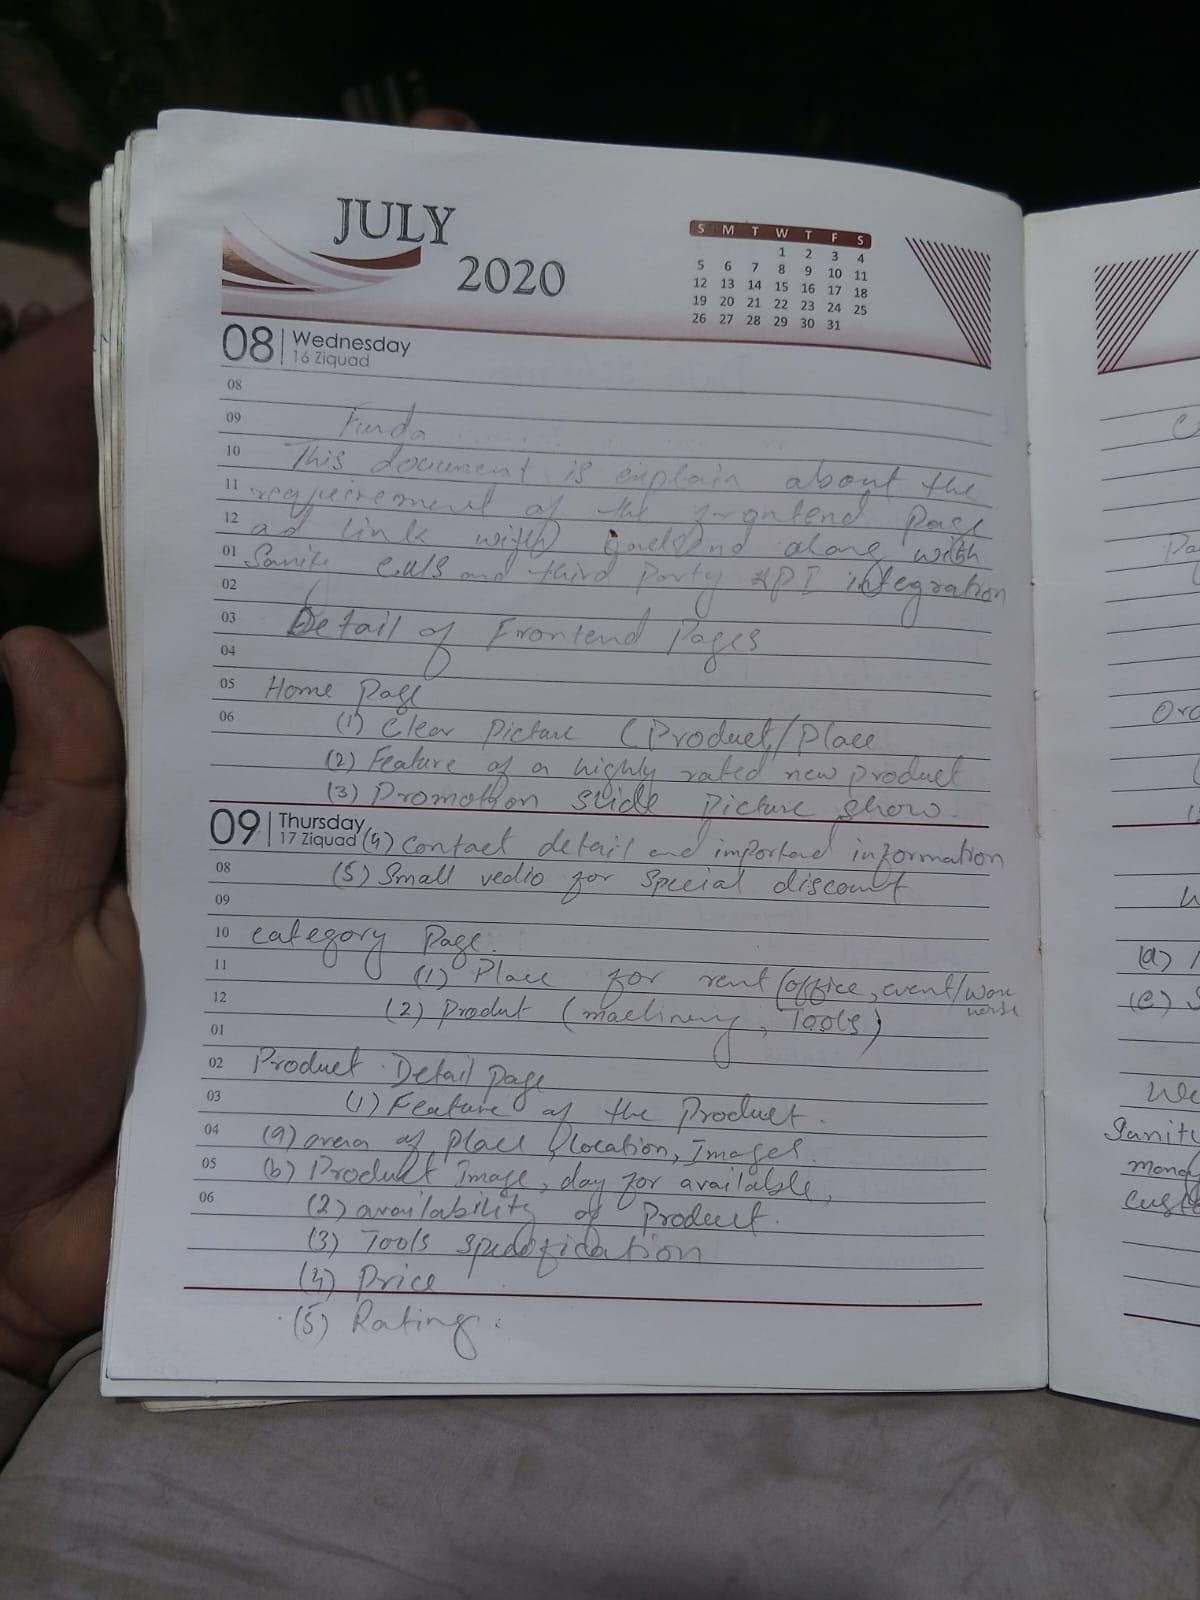 JULY
2020
S M T W T F S
1 2 3 4
5 6 7 8 9 10 11
12 13 14 15 16 17 18
19 20 21 22 23 24 25
26 27 28 29 30 31
08 Wednesday
16 Ziquad
08
09 Funda
10 This document is explain about the
11 requirement of the frontend Page
12 ad link with backend along with
01 and third Party API integration
02
03 Detail of Frontend Pages
04
05 Home Page
06 (1) Clear Picture (Product/Place
(2) Feature of a highly rated new product
(3) Promotion slide Picture show.
09 Thursday
17 Ziquad (4) contact detail and importand information
08 (5) Small vedio for special discount
09
10 category Page.
11 (1) Place for rent (office, event/
12 (2) Produt (machinery, Tools)
01
02 Product Detail Page
03 (1) Feature of the Product.
04 (a) area of Place location, Images.
05 (b) Product Image, day for available,
06 (2) availability of Product.
(3) Tools
(4) Price
(5) Rating.
(a)
(e)
We
Sanity